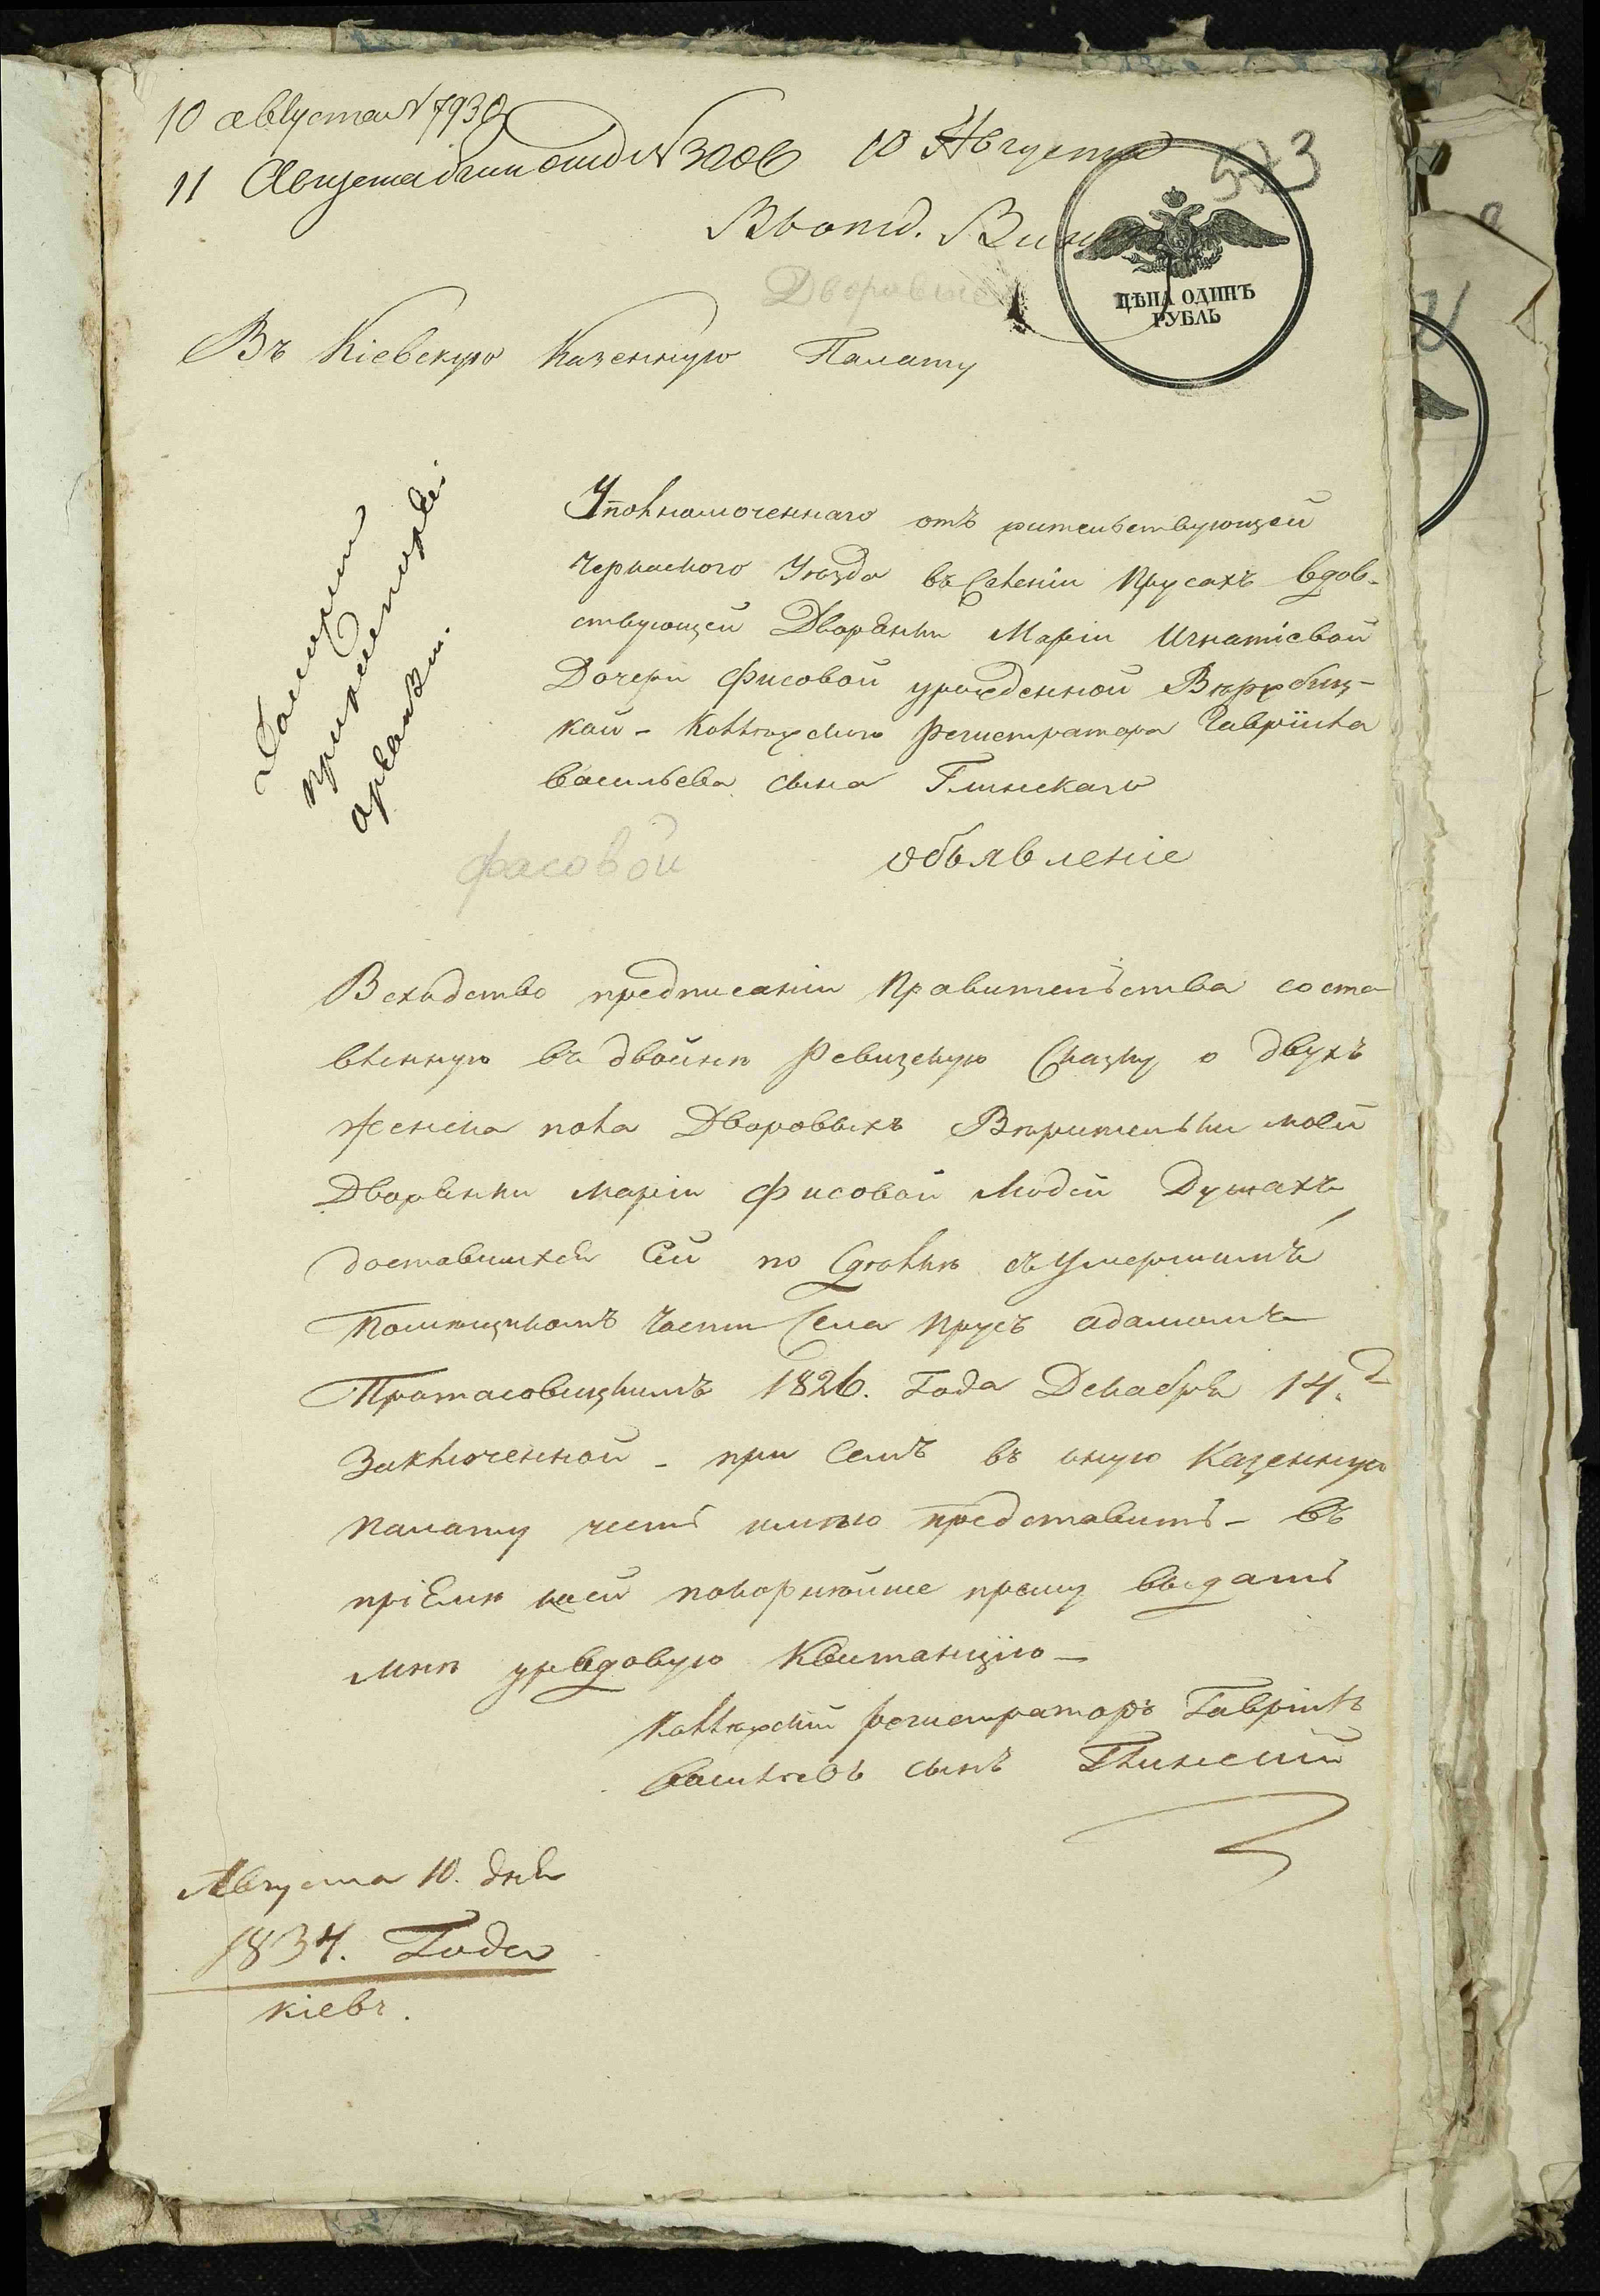 10 августа N 7930
11 Августа N 3006
10 Августа
573
ЦѢНА ОДИНЪ
РУБЛЬ
Дворовые
Въ Кіевскую Казенную Палату
Уполнамоченнаго отъ жительствующей
Черкаского Уезда въ Селеніи Прусахъ вдов-
ствующей Дворянки Маріи Игнатіевой
Дочери Фисовой урожденной Вѣрхбиц-
кой - Коллежского Регистратора Гавріила
Васильева сына Глинскаго
Фасовой
объявленіе
Всходство предписаніи Правительства соста
вленную въ двойнѣ Ревизскую Сказку о двухъ
женска пола Дворовыхъ Вѣрительки моей
Дворянки Маріи Фисовой Людей Душахъ
доставшихся Ей по Сделки съ Умершимъ
Помещикомъ Части Села Прусъ Адамомъ
Протасовицкимъ 1826. Года Декабря 14.
Заключенной - при Семъ въ оную Казенную
Палату честь имѣю представить - въ
пріемѣ коей покорнѣйше прошу выдать
мнѣ урядовую Квитанцію -
Коллежскій Регистраторъ Гавріилъ
Васильевъ сынъ Глинскій
Августа 10. дня
1834. Года
Кіевъ.